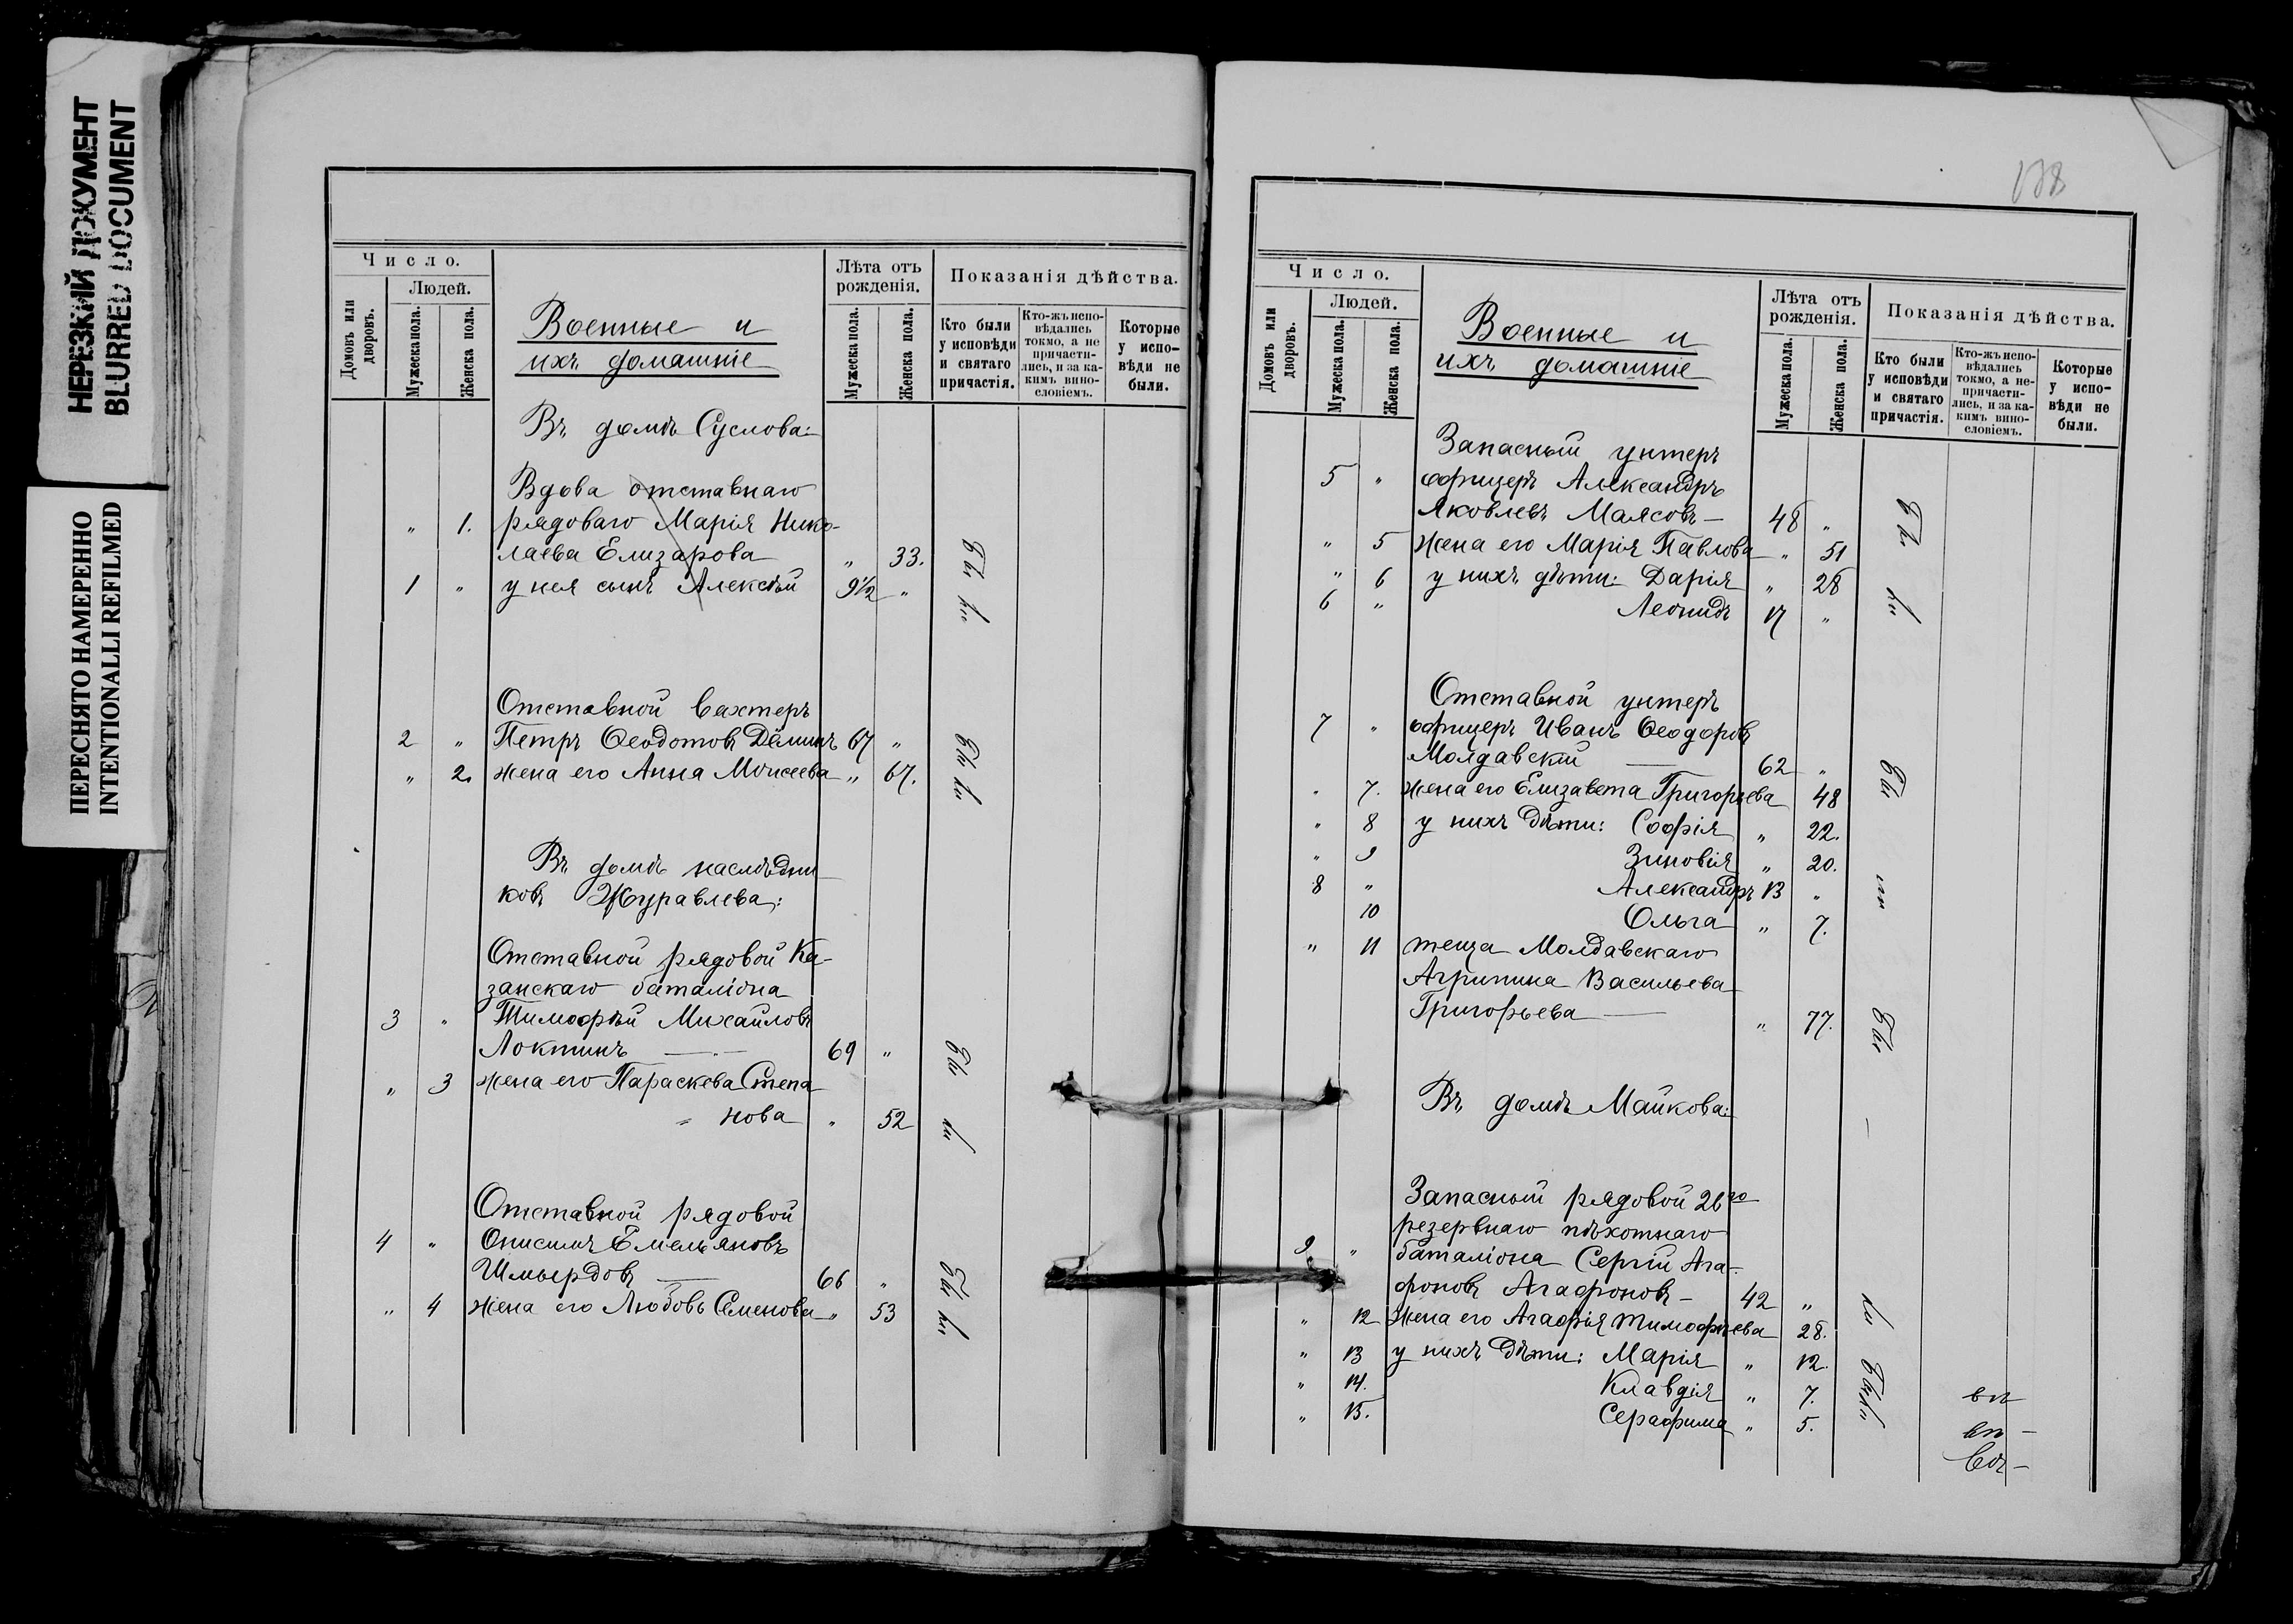 НЕРЕЗКИЙ ДОКУМЕНТ
BLURRED DOCUMENT
ПЕРЕСНЯТО НАМЕРЕННО
INTENTIONALLI REFILMED
Число.
Людей.
Домовъ или дворовъ.
Мужеска пола.
Женска пола.
Военные и
ихъ домашніе
Лѣта отъ рожденія.
Мужеска пола.
Женска пола.
Показанія дѣйства.
Кто были у исповѣди и святаго причастія.
Кто-жъ исповѣдались токмо, а не причастились, и за какимъ винословіемъ.
Которые у исповѣди не были.
Въ домѣ Суслова:
Вдова отставнаго
" 1. рядоваго Марія Нико-
лаева Елизарова " 33.
1 " у нея сынъ Алексѣй 9½ "
Отставной вахтеръ
2 " Петръ Ѳеодотовъ Дёминъ 67 "
" 2. жена его Анна Моисеева " 67.
Въ домѣ наслѣдни-
ковъ Журавлева:
Отставной рядовой Ка-
занскаго баталіона
3 " Тимофѣй Михайловъ
Локтинъ — 69 "
" 3 жена его Параскева Степа
= нова " 52
Отставной рядовой
4 " Онисимъ Емельяновъ
Шмырдовъ — 66 "
" 4 жена его Любовь Семенова " 53
138
Число.
Людей.
Домовъ или дворовъ.
Мужеска пола.
Женска пола.
Военные и
ихъ домашніе
Лѣта отъ рожденія.
Мужеска пола.
Женска пола.
Показанія дѣйства.
Кто были у исповѣди и святаго причастія.
Кто-жъ исповѣдались токмо, а не-причастились, и за какимъ винословіемъ.
Которые у исповѣди не были.
Запасный унтеръ
5 " офицеръ Александръ
Яковлевъ Маясовъ — 48 "
" 5 жена его Марія Павлова " 51
" 6 у нихъ дѣти: Дарія " 28
6 " Леонидъ 17 "
Отставной унтеръ
7 " офицеръ Иванъ Ѳеодоровъ
Молдавскій — 62 "
" 7. жена его Елизавета Григорьева 48
" 8 у нихъ дѣти: Софія " 22.
" 9 Зиновія " 20.
8 " Александръ 13 "
10 Ольга " 7.
" 11 теща Молдавскаго
Агрипина Васильева
Григорьева — " 77.
Въ домѣ Майкова:
Запасный рядовой 26го
резервнаго пѣхотнаго
9 " баталіона Сергій Ага-
фоновъ Агафоновъ — 42 "
" 12 жена его Агафія Тимофѣева 28.
" 13 у нихъ дѣти: Марія " 12.
" 14. Клавдія " 7.
" 15. Серафима " 5.